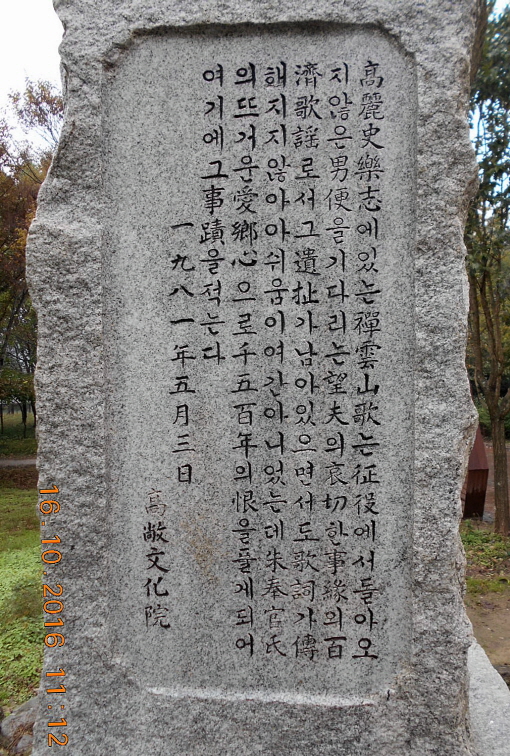 高麗史樂志에있는禪雲山歌는征役에서돌아오
지않은男便을기다리는望夫의哀切한事緣의百
濟歌謠로서그遺址가남아있으면서도歌詞가傳
해지지않아아쉬움이여간아니었는데朱奉官氏
의뜨거운愛鄕心으로千五百年의恨을풀게되어
여기에그事蹟을적는다
一九八一年五月三日
高敞文化院
16.10.2016 11:12